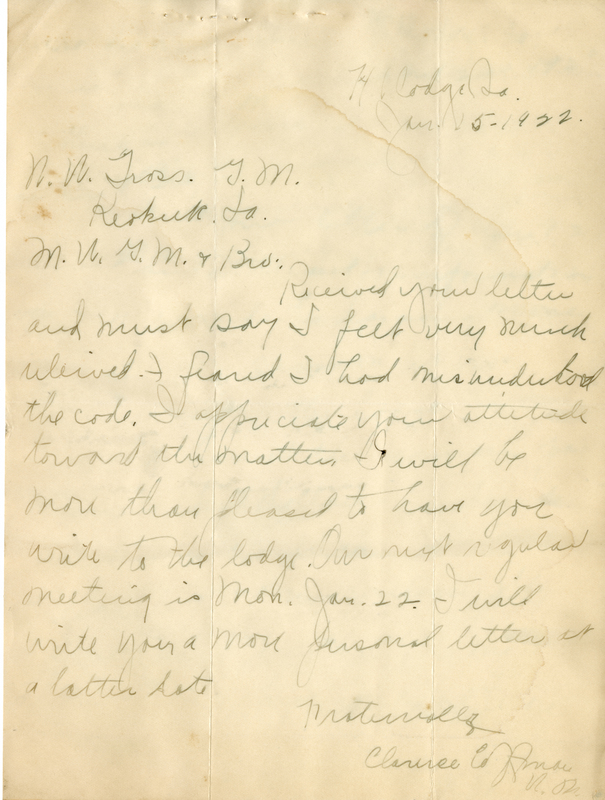 Lodge, Ia.
Jan. 15-1922.
W. W. Gross. G. M.
Keokuk, Ia.
M. W. G. M. & Bro:.
Received your letter
and must say I felt very much
relieved. I feared I had misunderstood
the code. I appreciate your attitude
toward the matter. I will be
more than pleased to have you
write to the lodge. Our next regular
meeting is Mon. Jan. 22. I will
write you a more personal letter at
a latter date
Fraternally
Clarence C.